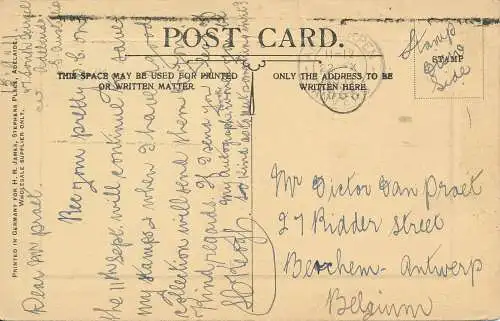 POST CARD.
THIS SPACE MAY BE USED FOR PRINTED
OR WRITTEN MATTER.
ONLY THE ADDRESS TO BE
WRITTEN HERE.
STAMP
Stamp
Side
PRINTED IN GERMANY FOR H. R. JAMES, STEPHENS PLACE, ADELAIDE.
WHOLESALE SUPPLIER ONLY.
Dear Mr Praet.
Rec your pretty
the 11th Sept. will continue to save
my stamps & when I have a good
collection will send them
Kind regards. If I send
my autograph
so kind as to
Mr Victor Van Praet
27 Ridder Street
Berchem - Antwerp
Belgium